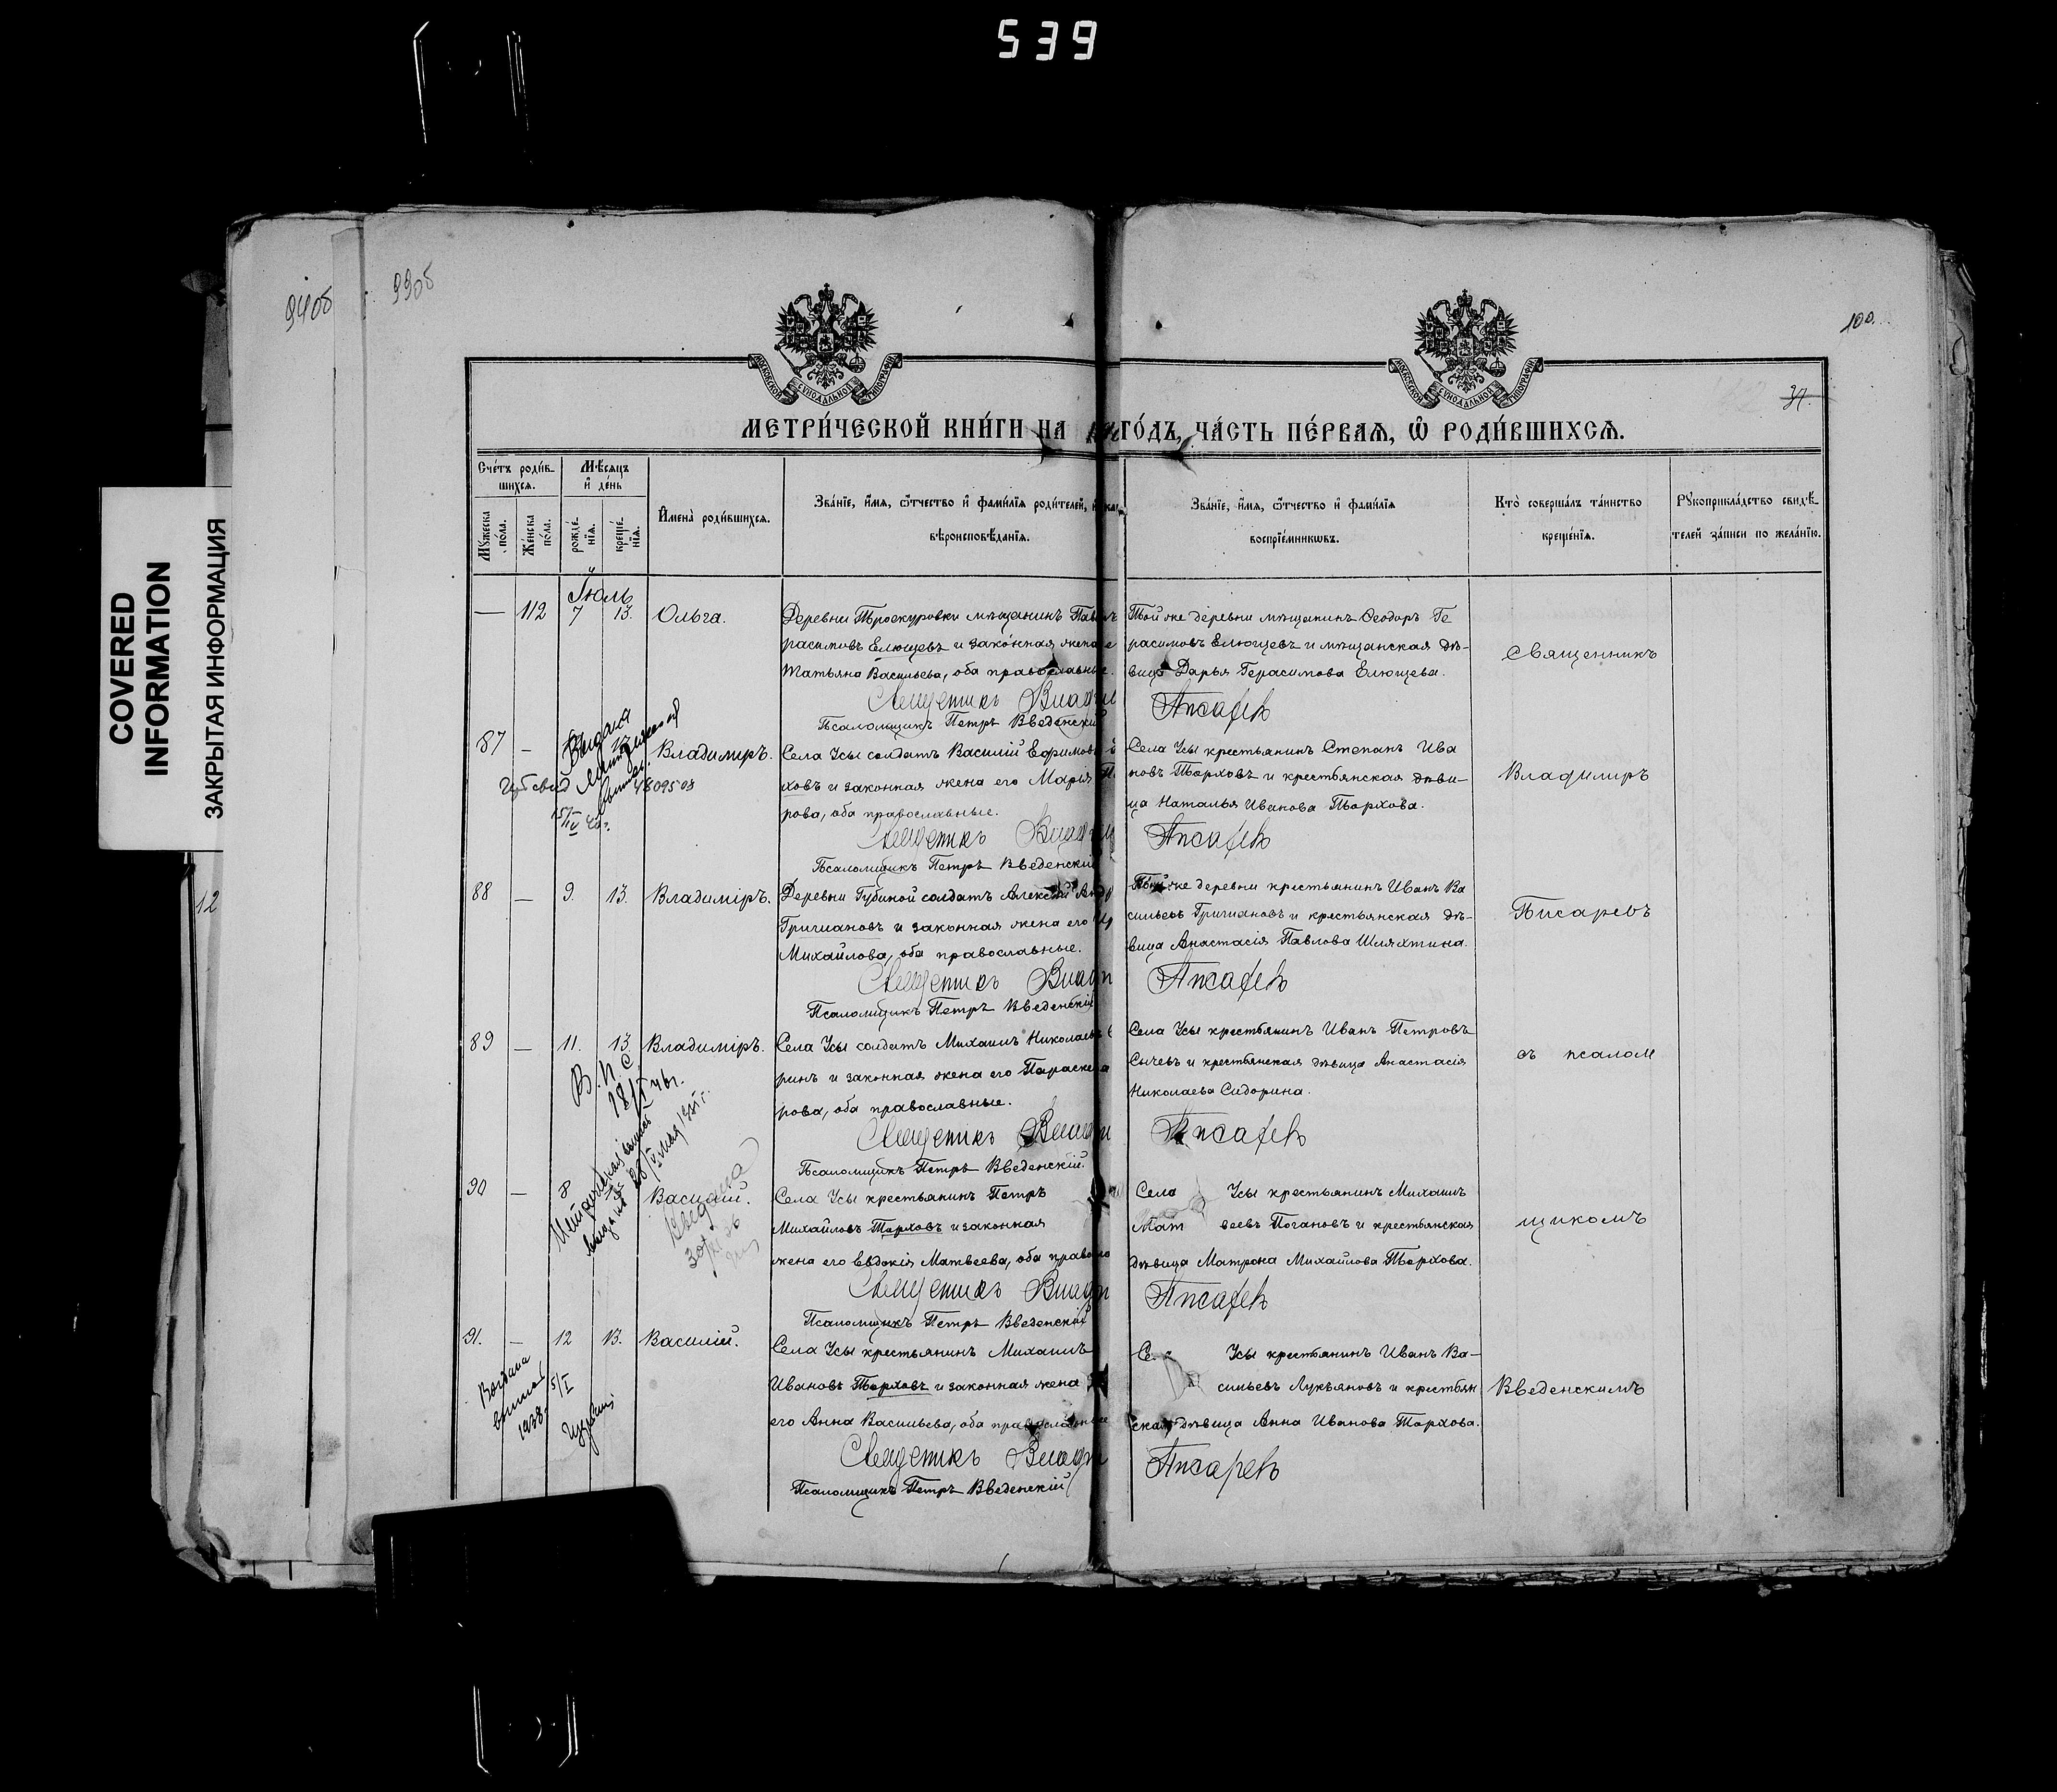 539
COVERED
INFORMATION
ЗАКРЫТАЯ ИНФОРМАЦИЯ
94об
99об
100.
37.
12
МОСКОВСКОЙ СѴНОДАЛЬНОЙ ТИПОГРАФІИ
МОСКОВСКОЙ СѴНОДАЛЬНОЙ ТИПОГРАФІИ
МЕТРИ́ЧЕСКОЙ КНИ́ГИ НА ГО́ДЪ, ЧА́СТЬ ПЕ́РВАѦ, Ѡ РОДИ́ВШИХСѦ.
Сче́тъ роди́в-
шихсѧ.
Мѣ́сѧцъ
и҆ де́нь
Мꙋ́жеска по́ла.
Же́нска по́ла.
рожде́-
нїѧ.
креще́-
нїѧ.
И҆мена̀ роди́вшихсѧ.
Зва́нїе, и҆́мѧ, ѻ҆́тчество и҆ фами́лїѧ роди́телей, и҆
вѣроисповѣ́данїѧ.
Зва́нїе, и҆́мѧ, ѻ҆́тчество и҆ фами́лїѧ
воспрїе́мникѡвъ.
Кто̀ соверша́лъ та́инство
креще́нїѧ.
Рꙋкоприкла́дство свидѣ́-
телей за́писи по жела́нїю.
Іюль
— 112 7 13. Ольга.
Деревни Троекуровки мѣщанинъ
расимовъ Елющевъ и законная жена
Татьяна Васильева, оба православные.
Священникъ
Псаломщикъ Петръ Введенскій
Той же деревни мѣщанинъ Ѳеодоръ Ге
расимовъ Елющевъ и мѣщанская дѣ-
вица Дарья Герасимова Елющева.
Писаревъ
Священникъ
87 — Владимиръ.
Выдана
15/IV 40г.
Села Усы солдатъ Василій
ховъ и законная жена его Марія
рова, оба православные.
Священникъ
Псаломщикъ Петръ Введенскій
Села Усы крестьянинъ Степанъ Ива
новъ Торховъ и крестьянская дѣви-
ца Наталья Иванова Торхова.
Писаревъ
Владимиръ
88 — 9. 13. Владиміръ.
Деревни Губиной солдатъ Алексѣй
Григиановъ и законная жена его
Михайлова, оба православные.
Священникъ
Псаломщикъ Петръ Введенскій
Той же деревни крестьянинъ Иванъ Ва
сильевъ Григиановъ и крестьянская дѣ-
вица Анастасія Павлова Шляхтина.
Писаревъ
Писаревъ
89 — 11. 13. Владиміръ.
18/I 46г.
Села Усы солдатъ Михаилъ Николаевъ
ринъ и законная жена его
рова, оба православные.
Священникъ
Псаломщикъ Петръ Введенскій.
Села Усы крестьянинъ Иванъ Петровъ
Сычевъ и крестьянская дѣвица Анастасія
Николаева Сидорина.
Писаревъ
съ псалом
90 — 8 Василій.
Села Усы крестьянинъ Петръ
Михайловъ Торховъ и законная
жена его Евдокія Матвеева, оба
Священникъ
Псаломщикъ Петръ Введенскій
Села Усы крестьянинъ Михаилъ
Мат веевъ Погановъ и крестьянская
дѣвица Матрона Михайлова Торхова.
Писаревъ
щикомъ
91. — 12 13. Василій.
1938.
5/I
Села Усы крестьянинъ Михаилъ
Ивановъ Торховъ и законная жена
его Анна Васильева, оба православные
Священникъ
Псаломщикъ Петръ Введенскій
Усы крестьянинъ Иванъ Ва-
сильевъ Лукьяновъ и крестьян
ская дѣвица Анна Иванова Торхова.
Писаревъ
Введенскимъ